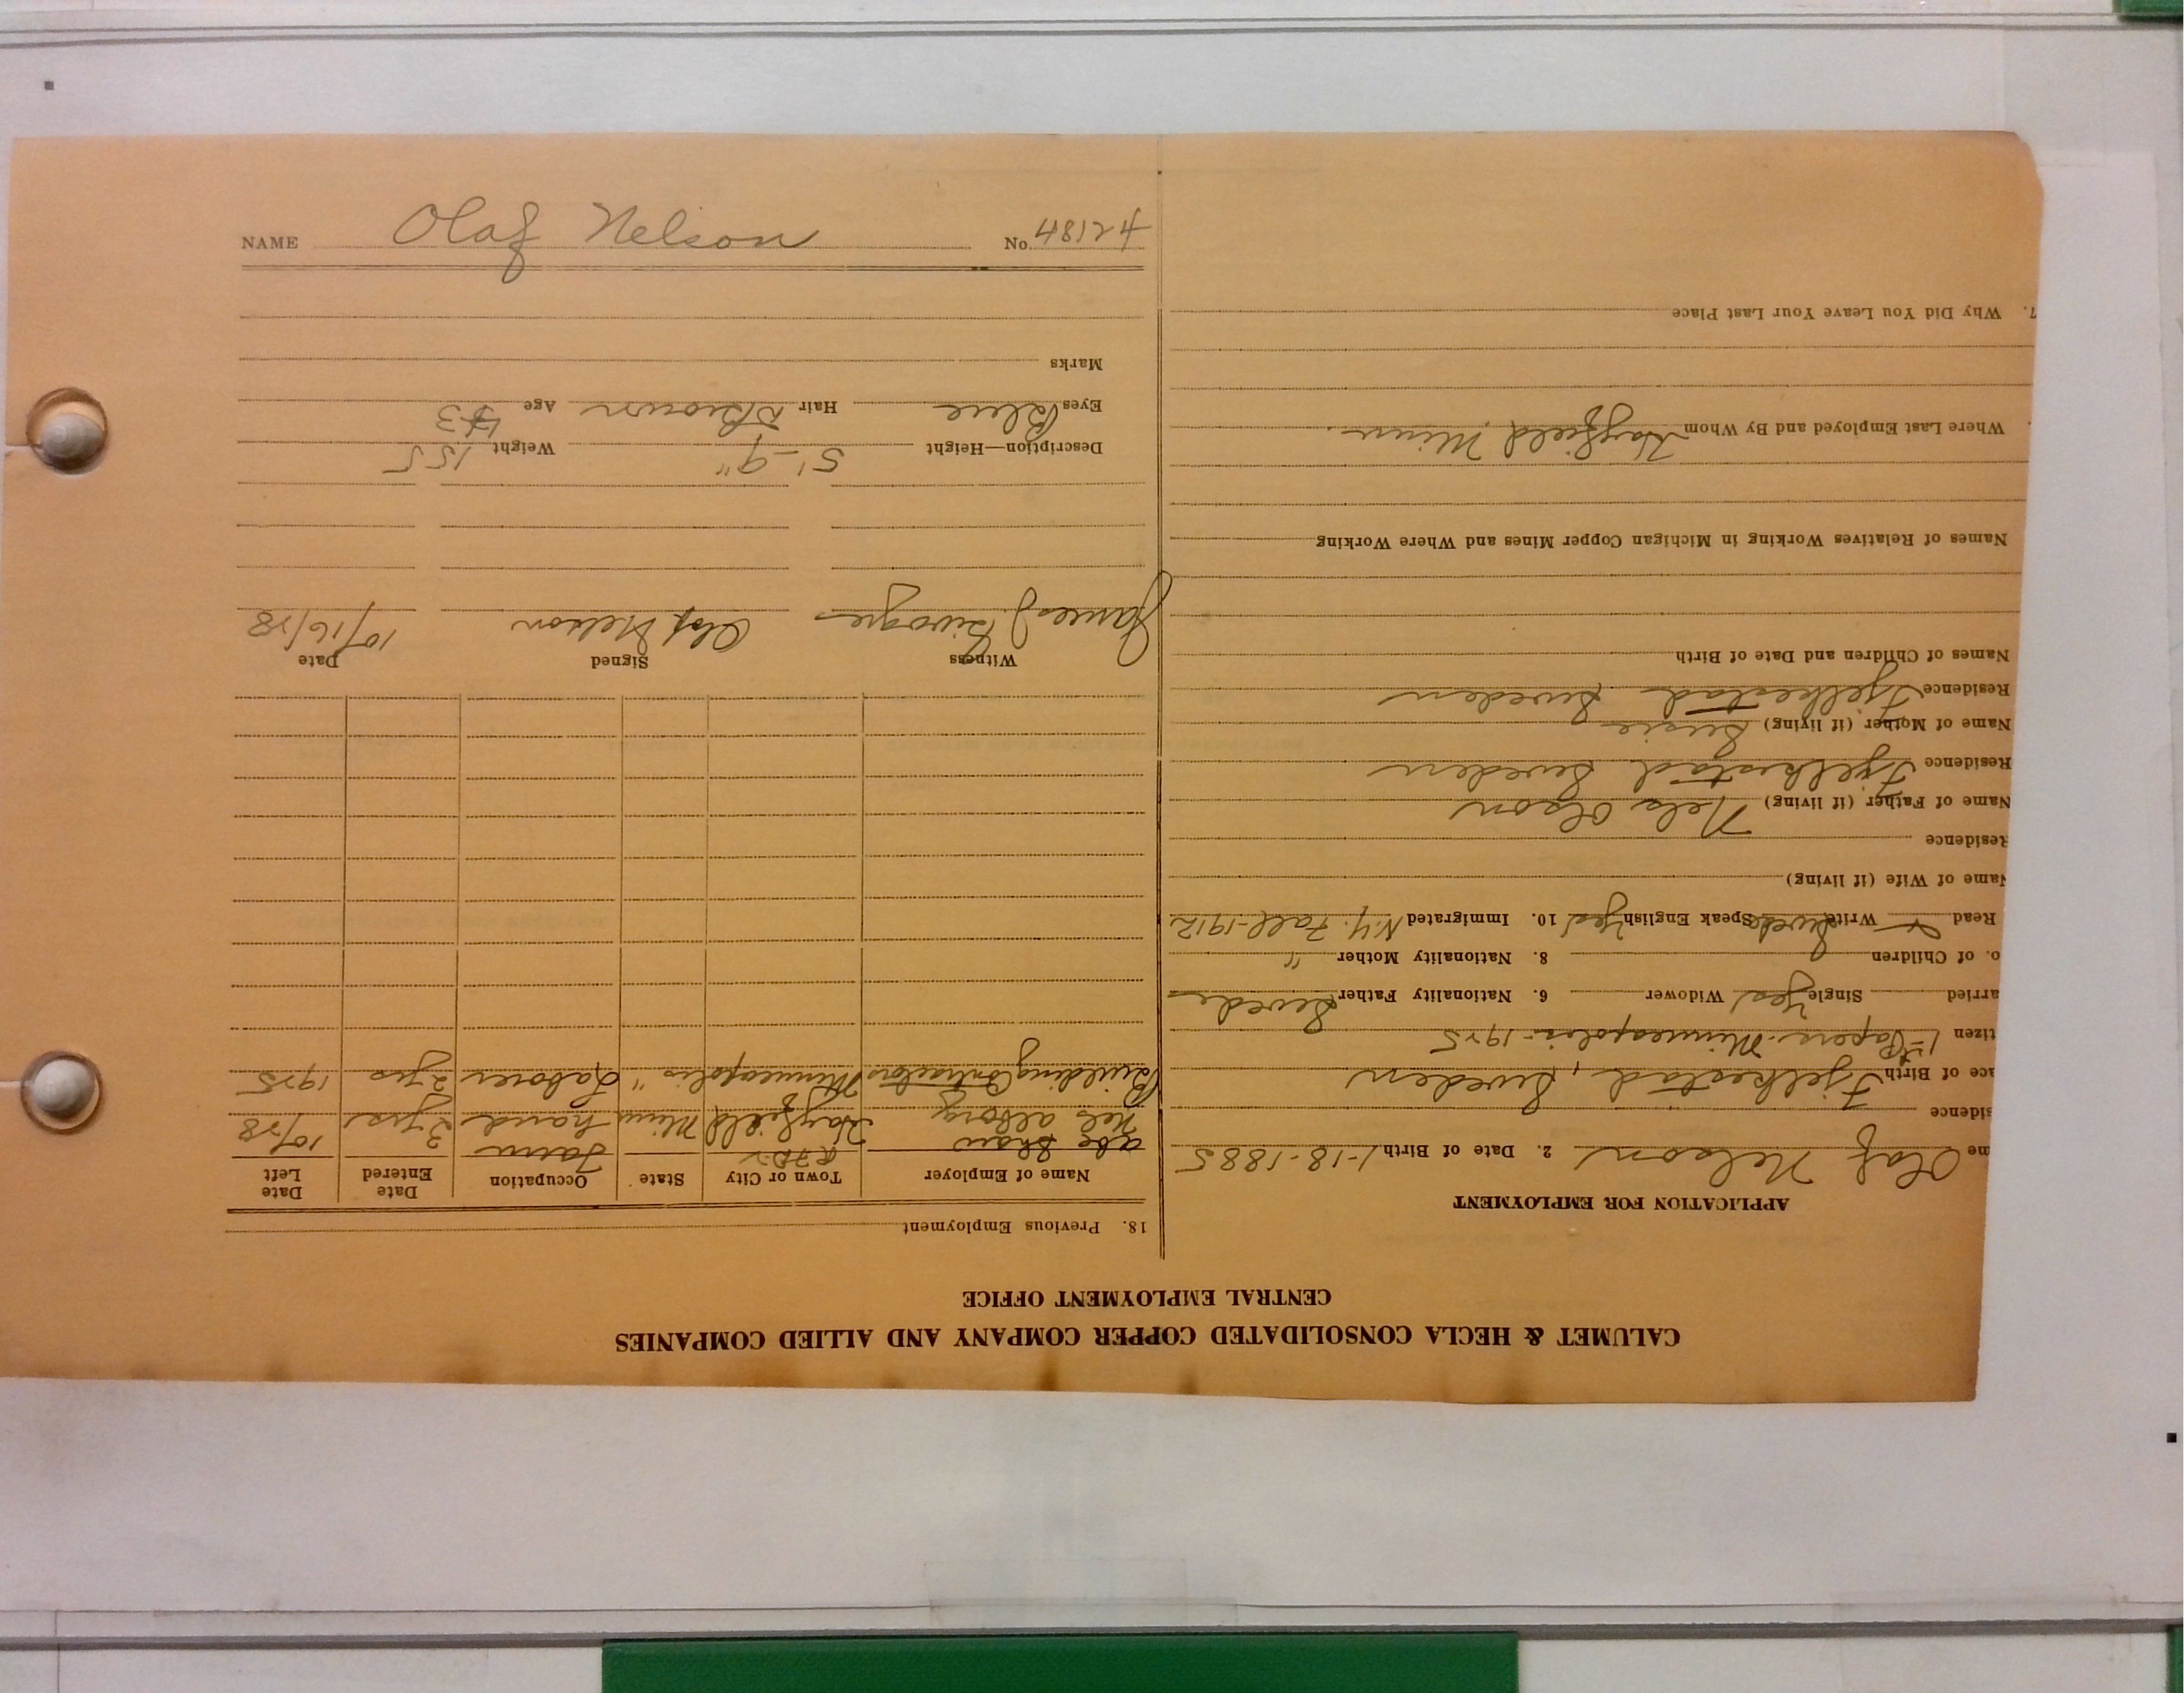 CALUMET & HECLA CONSOLIDATED COPPER COMPANY AND ALLIED COMPANIES
CENTRAL EMPLOYMENT OFFICE
APPLICATION FOR EMPLOYMENT
me Olaf Nelson 2. Date of Birth 1-18-1885
sidence
ace of Birth Fjelkestad, Sweden
tizen 1st Papers - Minneapolis - 1925
arried Single Yes Widower 6. Nationality Father Swede
o. of Children 8. Nationality Mother "
Read Write Swede Speak English Yes 10. Immigrated N.Y. Fall-1912
Name of Wife (if living)
Residence
Name of Father (if living) Nels Olson
Residence Fjelkestad Sweden
Name of Mother (if living) Susie
Residence Fjelkestad Sweden
Names of Children and Date of Birth
Names of Relatives Working in Michigan Copper Mines and Where Working
Where Last Employed and By Whom Hayfield Minn.
7. Why Did You Leave Your Last Place
18. Previous Employment
Name of Employer Town or City State Occupation Date Entered Date Left
Abe Shaw R.F.D. 2 Farm
Nels Hayfield Minn hand 3 yrs 10/28
Building Contractors Minneapolis " Laborer 2 yrs 1925
Witness Signed Date
James J. Olof Nelson 10/16/28
Description—Height 5'-9" Weight 155
Eyes Blue Hair Brown Age 43
Marks
NAME Olaf Nelson No. 48124